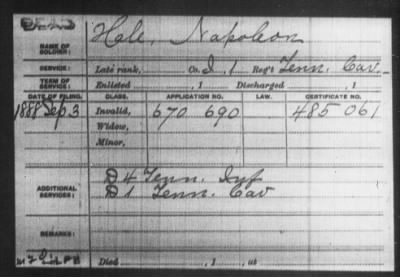 DEAD
NAME OF SOLDIER: Hale, Napoleon
SERVICE: Late rank, Co. I, 1 Reg't Tenn. Cav.
TERM OF SERVICE: Enlisted , 1 Discharged , 1
DATE OF FILING. CLASS. APPLICATION NO. LAW. CERTIFICATE NO.
1888 Sep 3 Invalid, 670 690 485 061
Widow,
Minor,
ADDITIONAL SERVICES: D 4 Tenn. Inf
D 1 Tenn. Cav
REMARKS:
Died , 1 , at